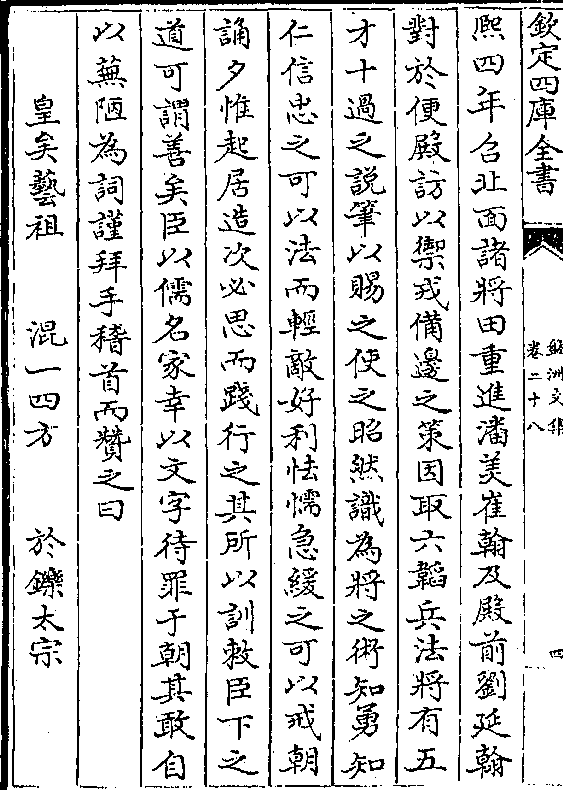 欽定四庫全書
盤洲文集
卷二十八
四
熙四年召北面諸將田重進潘美崔翰及殿前劉延翰
對於便殿訪以禦戎備邊之策因取六韜兵法將有五
才十過之説筆以賜之使之昭然識為將之術知勇知
仁信忠之可以法而輕敵好利怯懦急緩之可以戒朝
誦夕惟起居造次必思而踐行之其所以訓敕臣下之
道可謂善矣臣以儒名家幸以文字待罪于朝其敢自
以蕪陋為詞謹拜手稽首而贊之曰
皇矣藝祖 混一四方 於鑠太宗